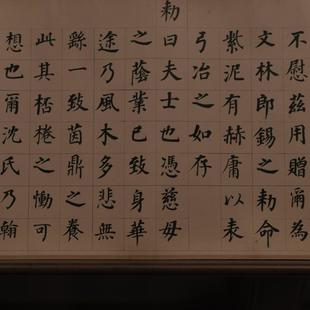 不慰茲用贈爾為
文林郎錫之勅命
紫泥有赫庸以表
弓冶之如存
勅曰夫士也憑慈母
之蔭業已致身華
途乃風木多悲無
繇一致茵鼎之養
此其桮棬之慟可
想也爾沈氏乃翰